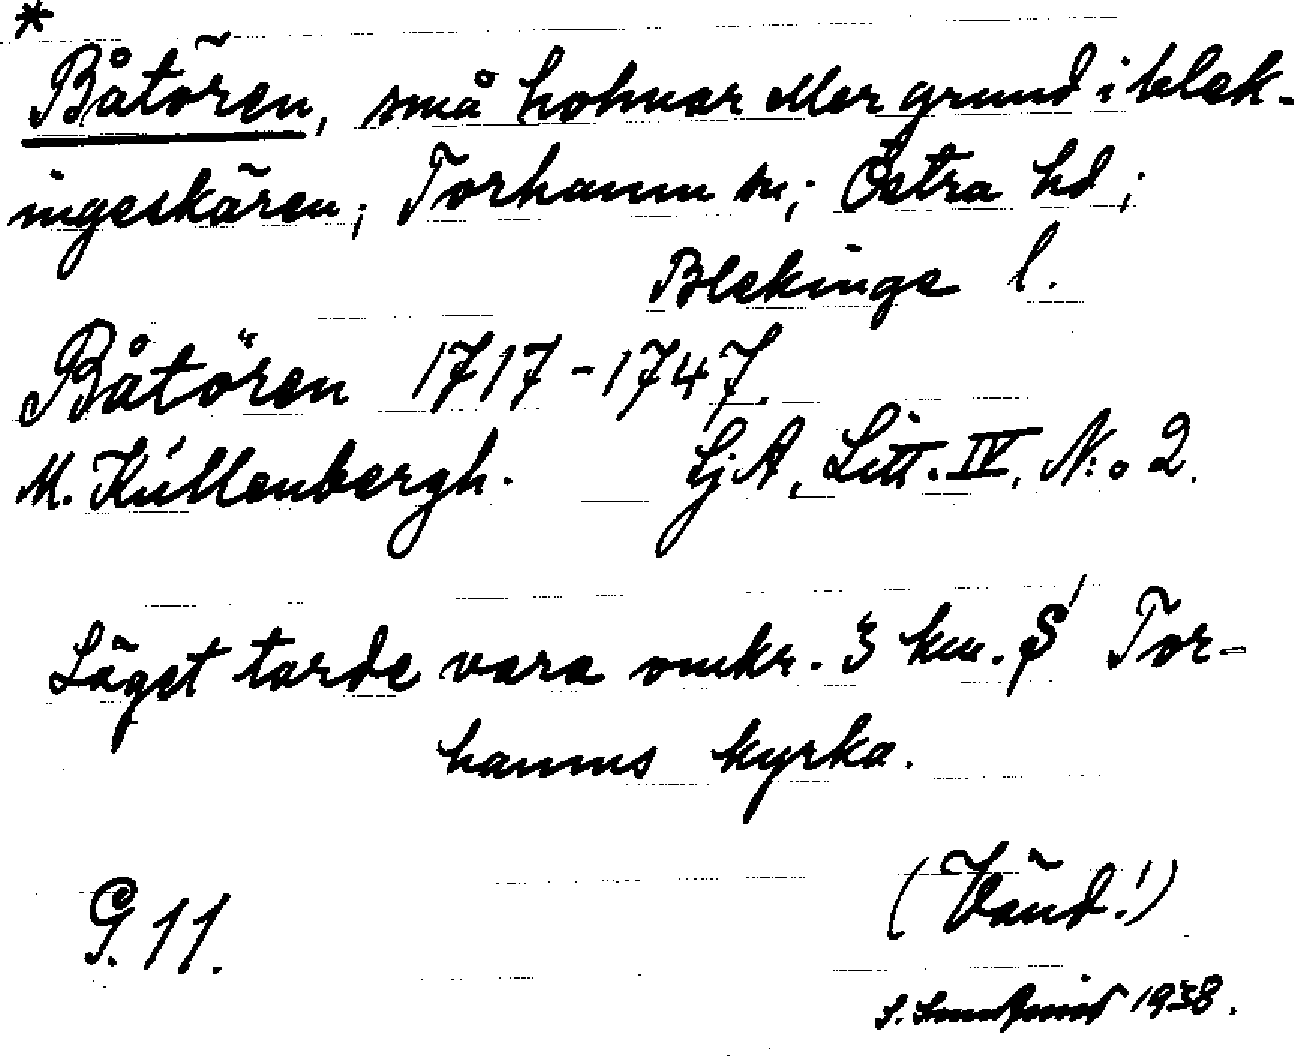 *
Båtören, små holmar eller grund i blek-
ingeskären; Torhamn sn; Östra hd;
Blekinge l.
Båtören 1717-1747.
M. Küllenbergh. LjA, Litt. IV, N:o 2.
Läget torde vara omkr. 3 km. S Tor-
hamns kyrka.
(Vänd!)
G. 11.
S. 1938.